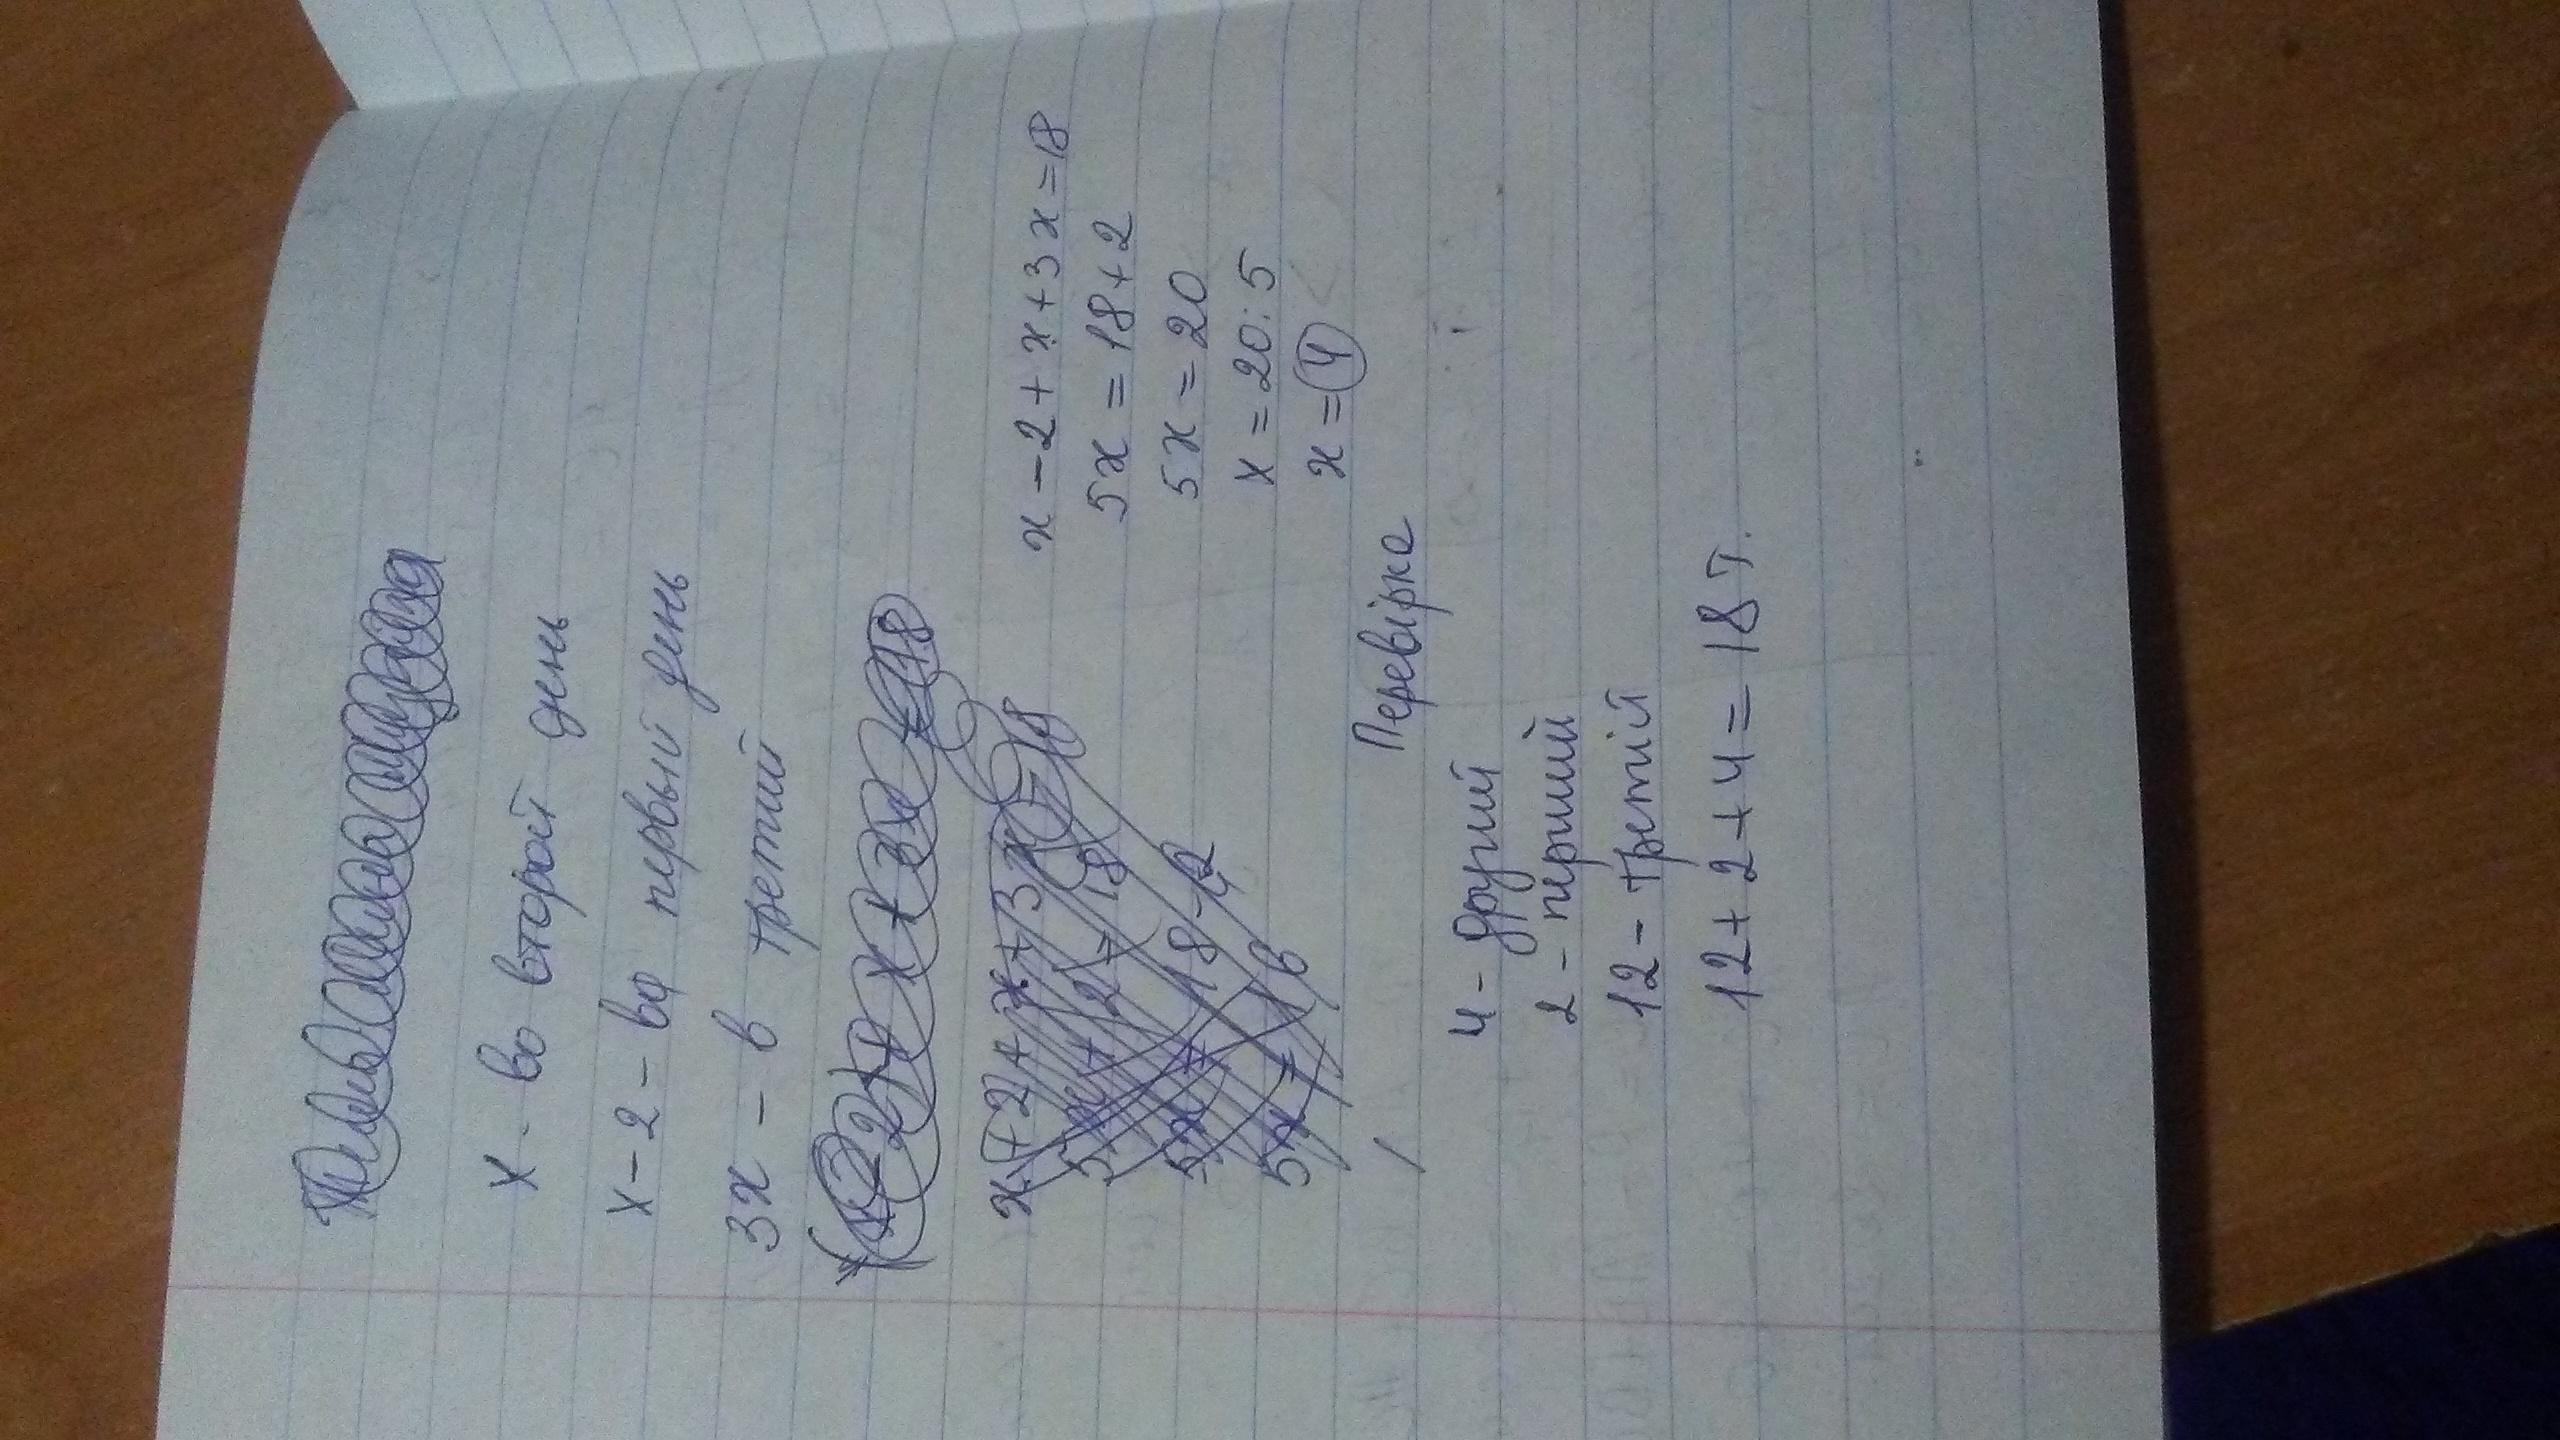 x - во второй день
x - 2 - во первый день
3x - в третий
x + 2 + x + 3x = 18
5x + 2 = 18
5x = 18 - 2
5x = 16
x - 2 + x + 3x = 18
5x = 18 + 2
5x = 20
x = 20 : 5
x = 4
Перевірка
4 - другий
2 - перший
12 - третій
12 + 2 + 4 = 18 т.